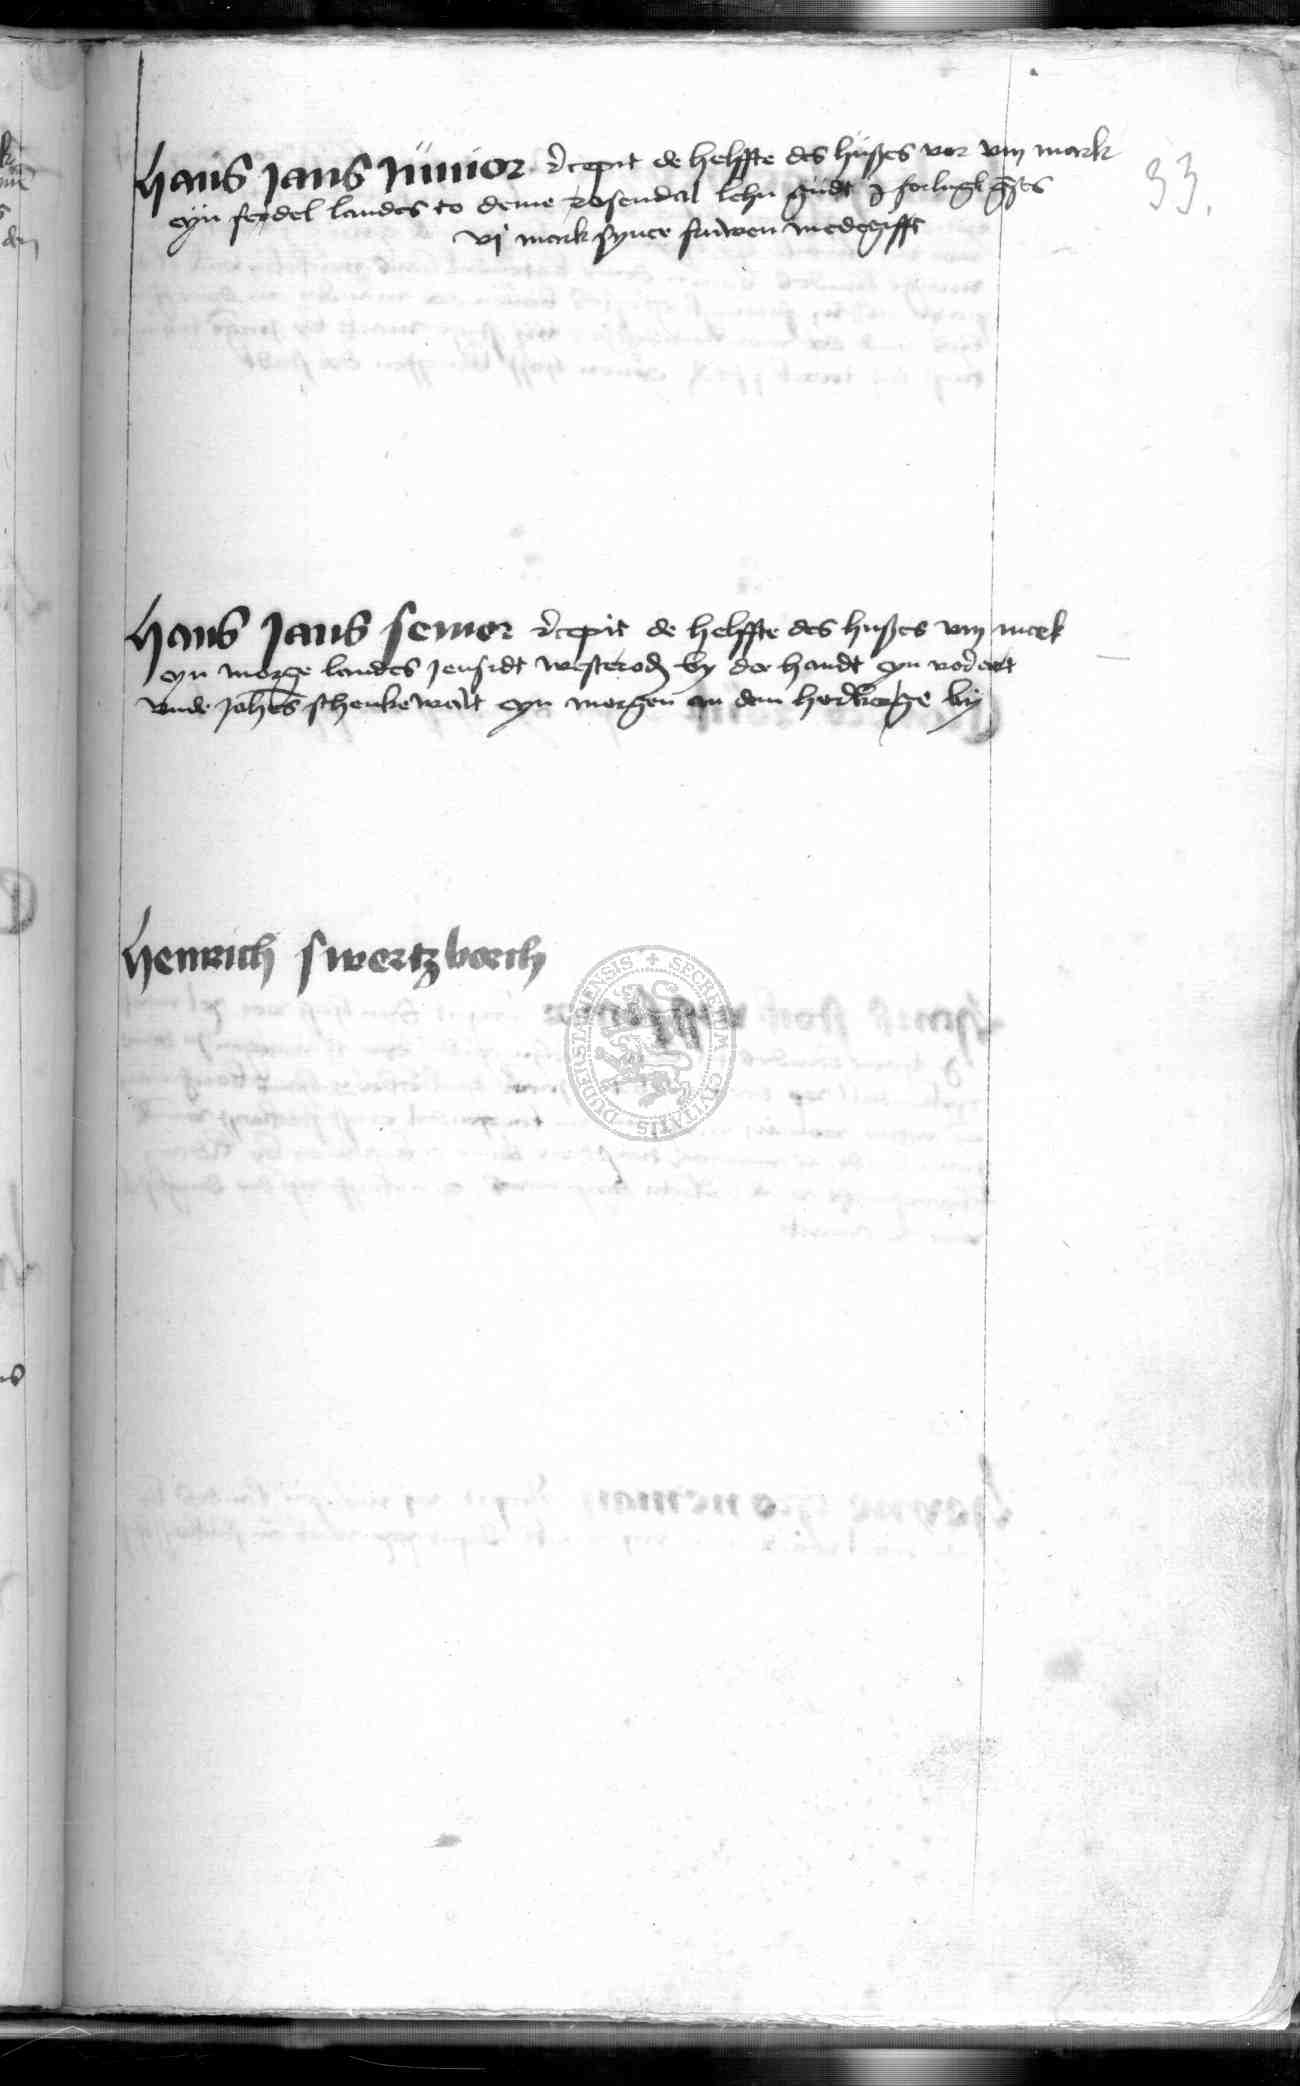 33.
Hans Jans Junior recepit de helffte des hußes vor viij mark
eyn ferdel landes to deme rosendal lehn gudt
vj mark syner fruwen medegifft
Hans Jans senior recepit de helffte des hußes viij mrk
eyn morge landes jensidt westerod by der handt eyn
vnde Johes schenkewalt eyn morgen an dem by
Henrich swertzborch
SECRETUM CIVITATIS DUDERSTADENSIS